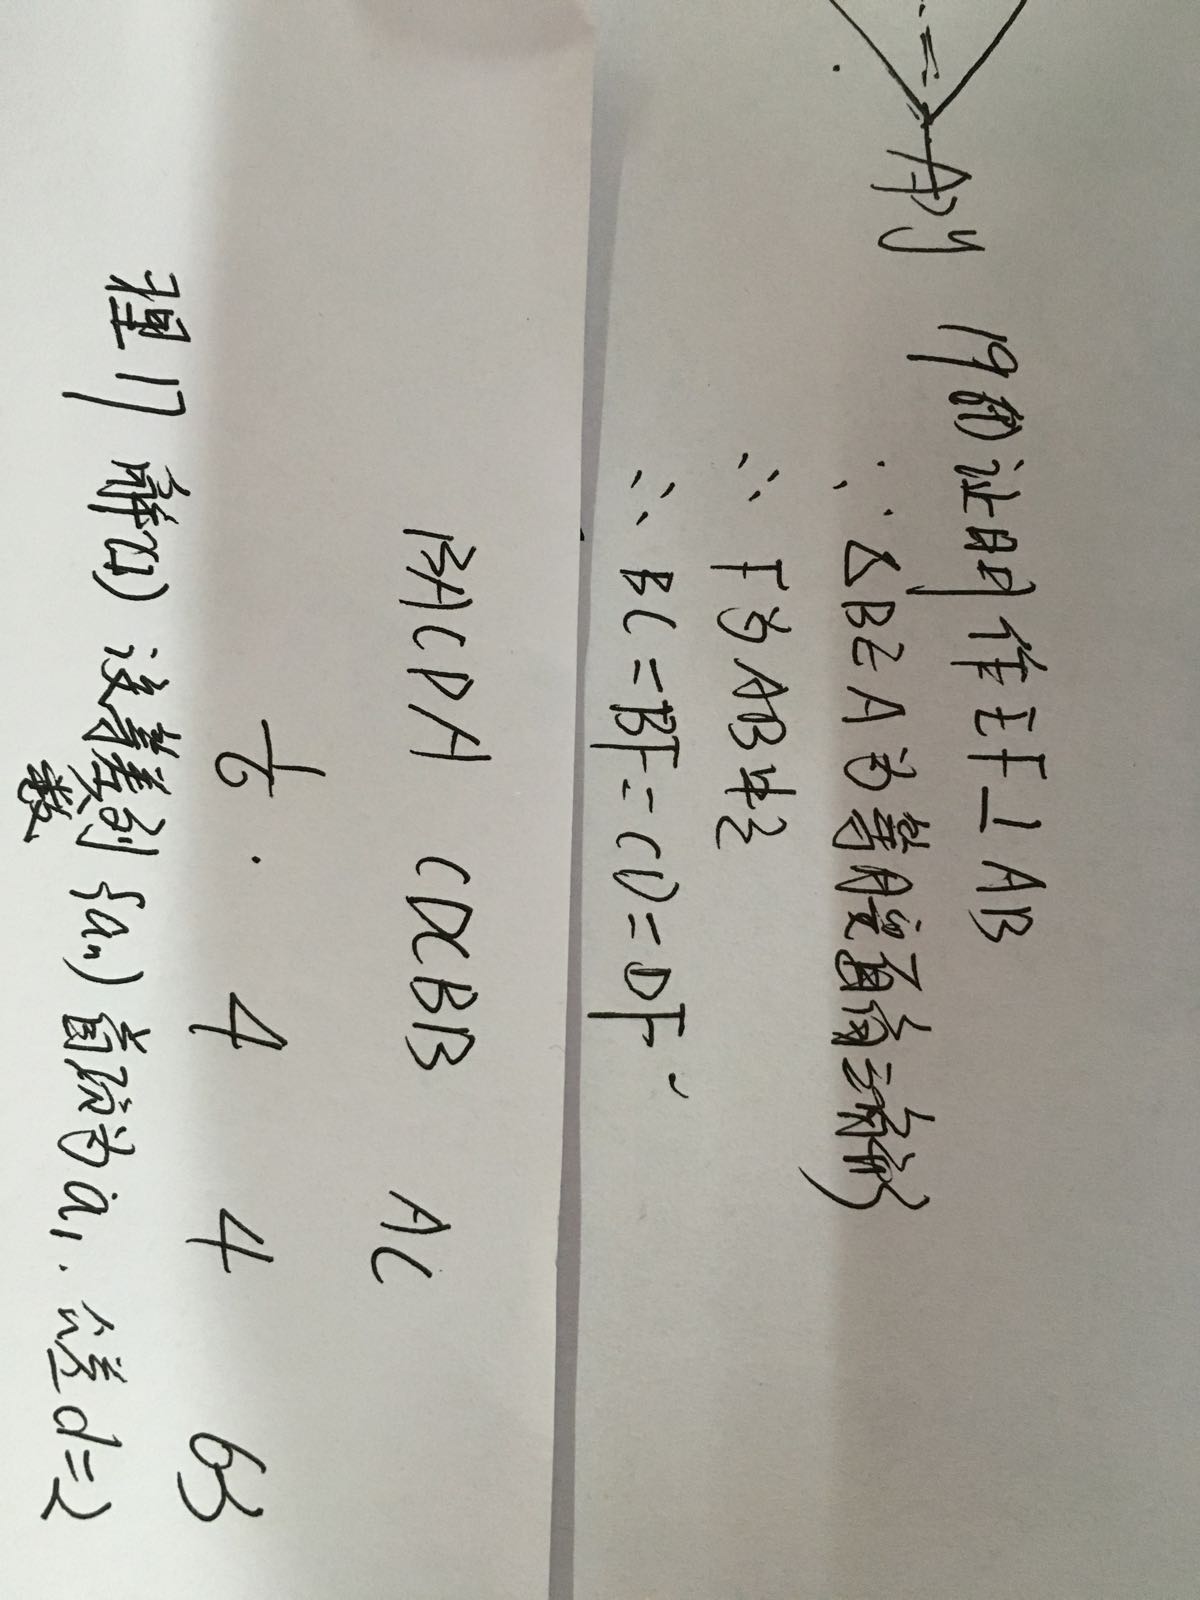 A→y
19(1)证明 作EF⊥AB
∵△BEA为等腰直角三角形
∴F为AB中点
∴BC=BF=CD=DF
BACDA CDCBB AC
1/6 4 4 63
理17 解(1) 设等差数列{an}首项为a1. 公差d=2